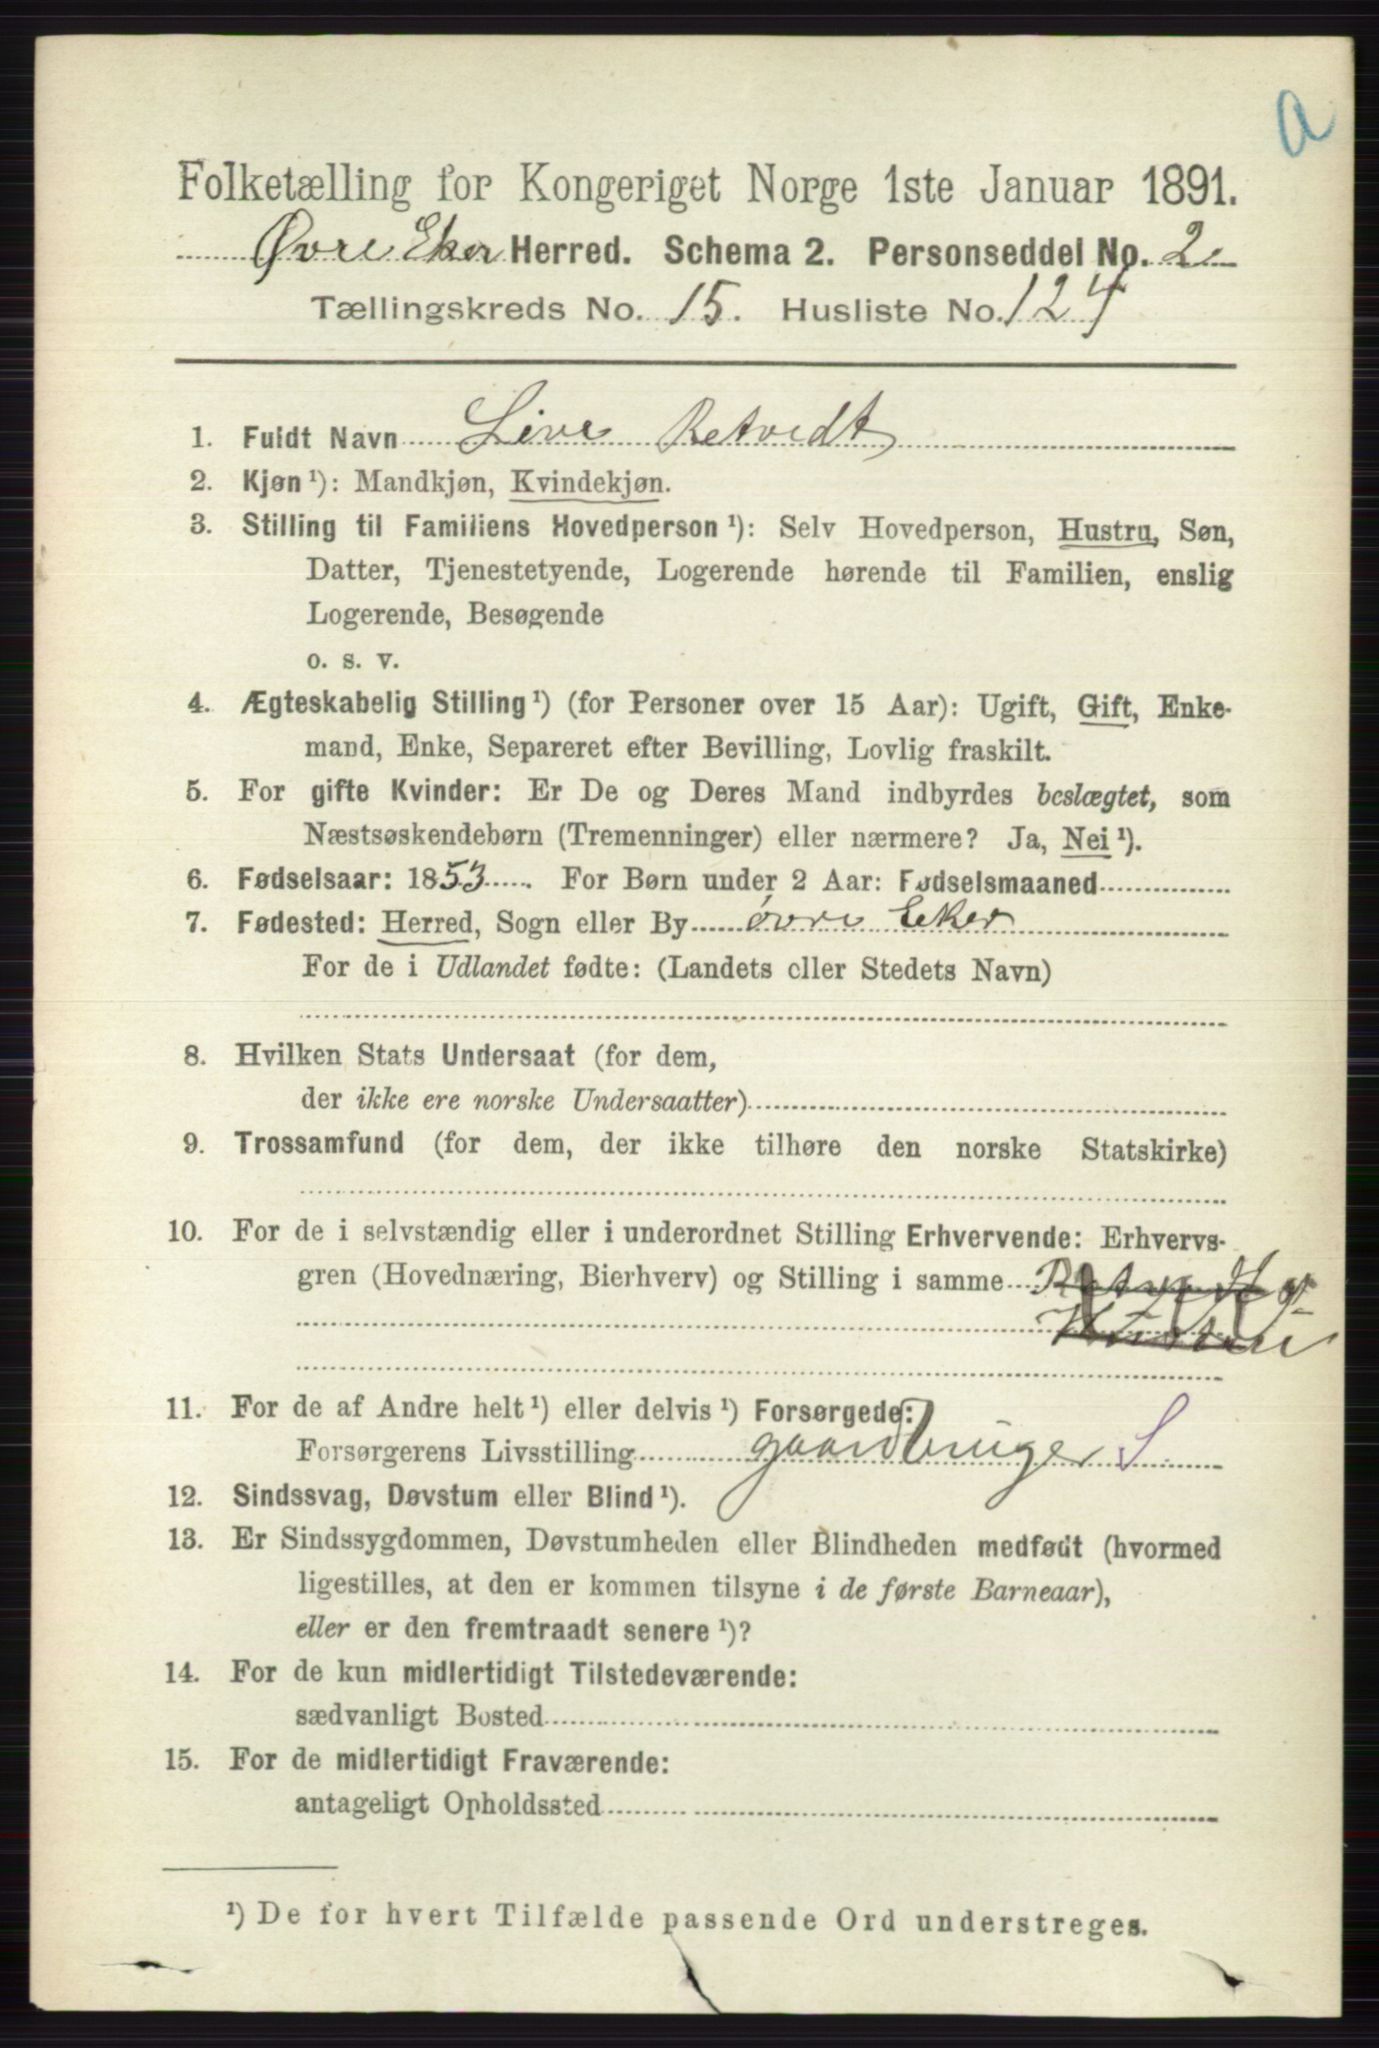 a
Folketælling for Kongeriget Norge 1ste Januar 1891.
Øvre Eker Herred. Schema 2. Personseddel No. 2
Tællingskreds No. 15. Husliste No. 124
1. Fuldt Navn Live Retvedt
2. Kjøn ¹): Mandkjøn, Kvindekjøn.
3. Stilling til Familiens Hovedperson ¹): Selv Hovedperson, Hustru, Søn,
Datter, Tjenestetyende, Logerende hørende til Familien, enslig
Logerende, Besøgende
o. s. v.
4. Ægteskabelig Stilling ¹) (for Personer over 15 Aar): Ugift, Gift, Enke-
mand, Enke, Separeret efter Bevilling, Lovlig fraskilt.
5. For gifte Kvinder: Er De og Deres Mand indbyrdes beslægtet, som
Næstsøskendebørn (Tremenninger) eller nærmere? Ja, Nei ¹).
6. Fødselsaar: 1853. For Børn under 2 Aar: Fødselsmaaned
7. Fødested: Herred, Sogn eller By øvre Eker
For de i Udlandet fødte: (Landets eller Stedets Navn)
8. Hvilken Stats Undersaat (for dem,
der ikke ere norske Undersaatter)
9. Trossamfund (for dem, der ikke tilhøre den norske Statskirke)
10. For de i selvstændig eller i underordnet Stilling Erhvervende: Erhvervs-
gren (Hovednæring, Bierhverv) og Stilling i samme
11. For de af Andre helt ¹) eller delvis ¹) Forsørgede:
Forsørgerens Livsstilling gaardbruger S
12. Sindssvag, Døvstum eller Blind ¹).
13. Er Sindssygdommen, Døvstumheden eller Blindheden medfødt (hvormed
ligestilles, at den er kommen tilsyne i de første Barneaar),
eller er den fremtraadt senere ¹)?
14. For de kun midlertidigt Tilstedeværende:
sædvanligt Bosted
15. For de midlertidigt Fraværende:
antageligt Opholdssted
¹) De for hvert Tilfælde passende Ord understreges.